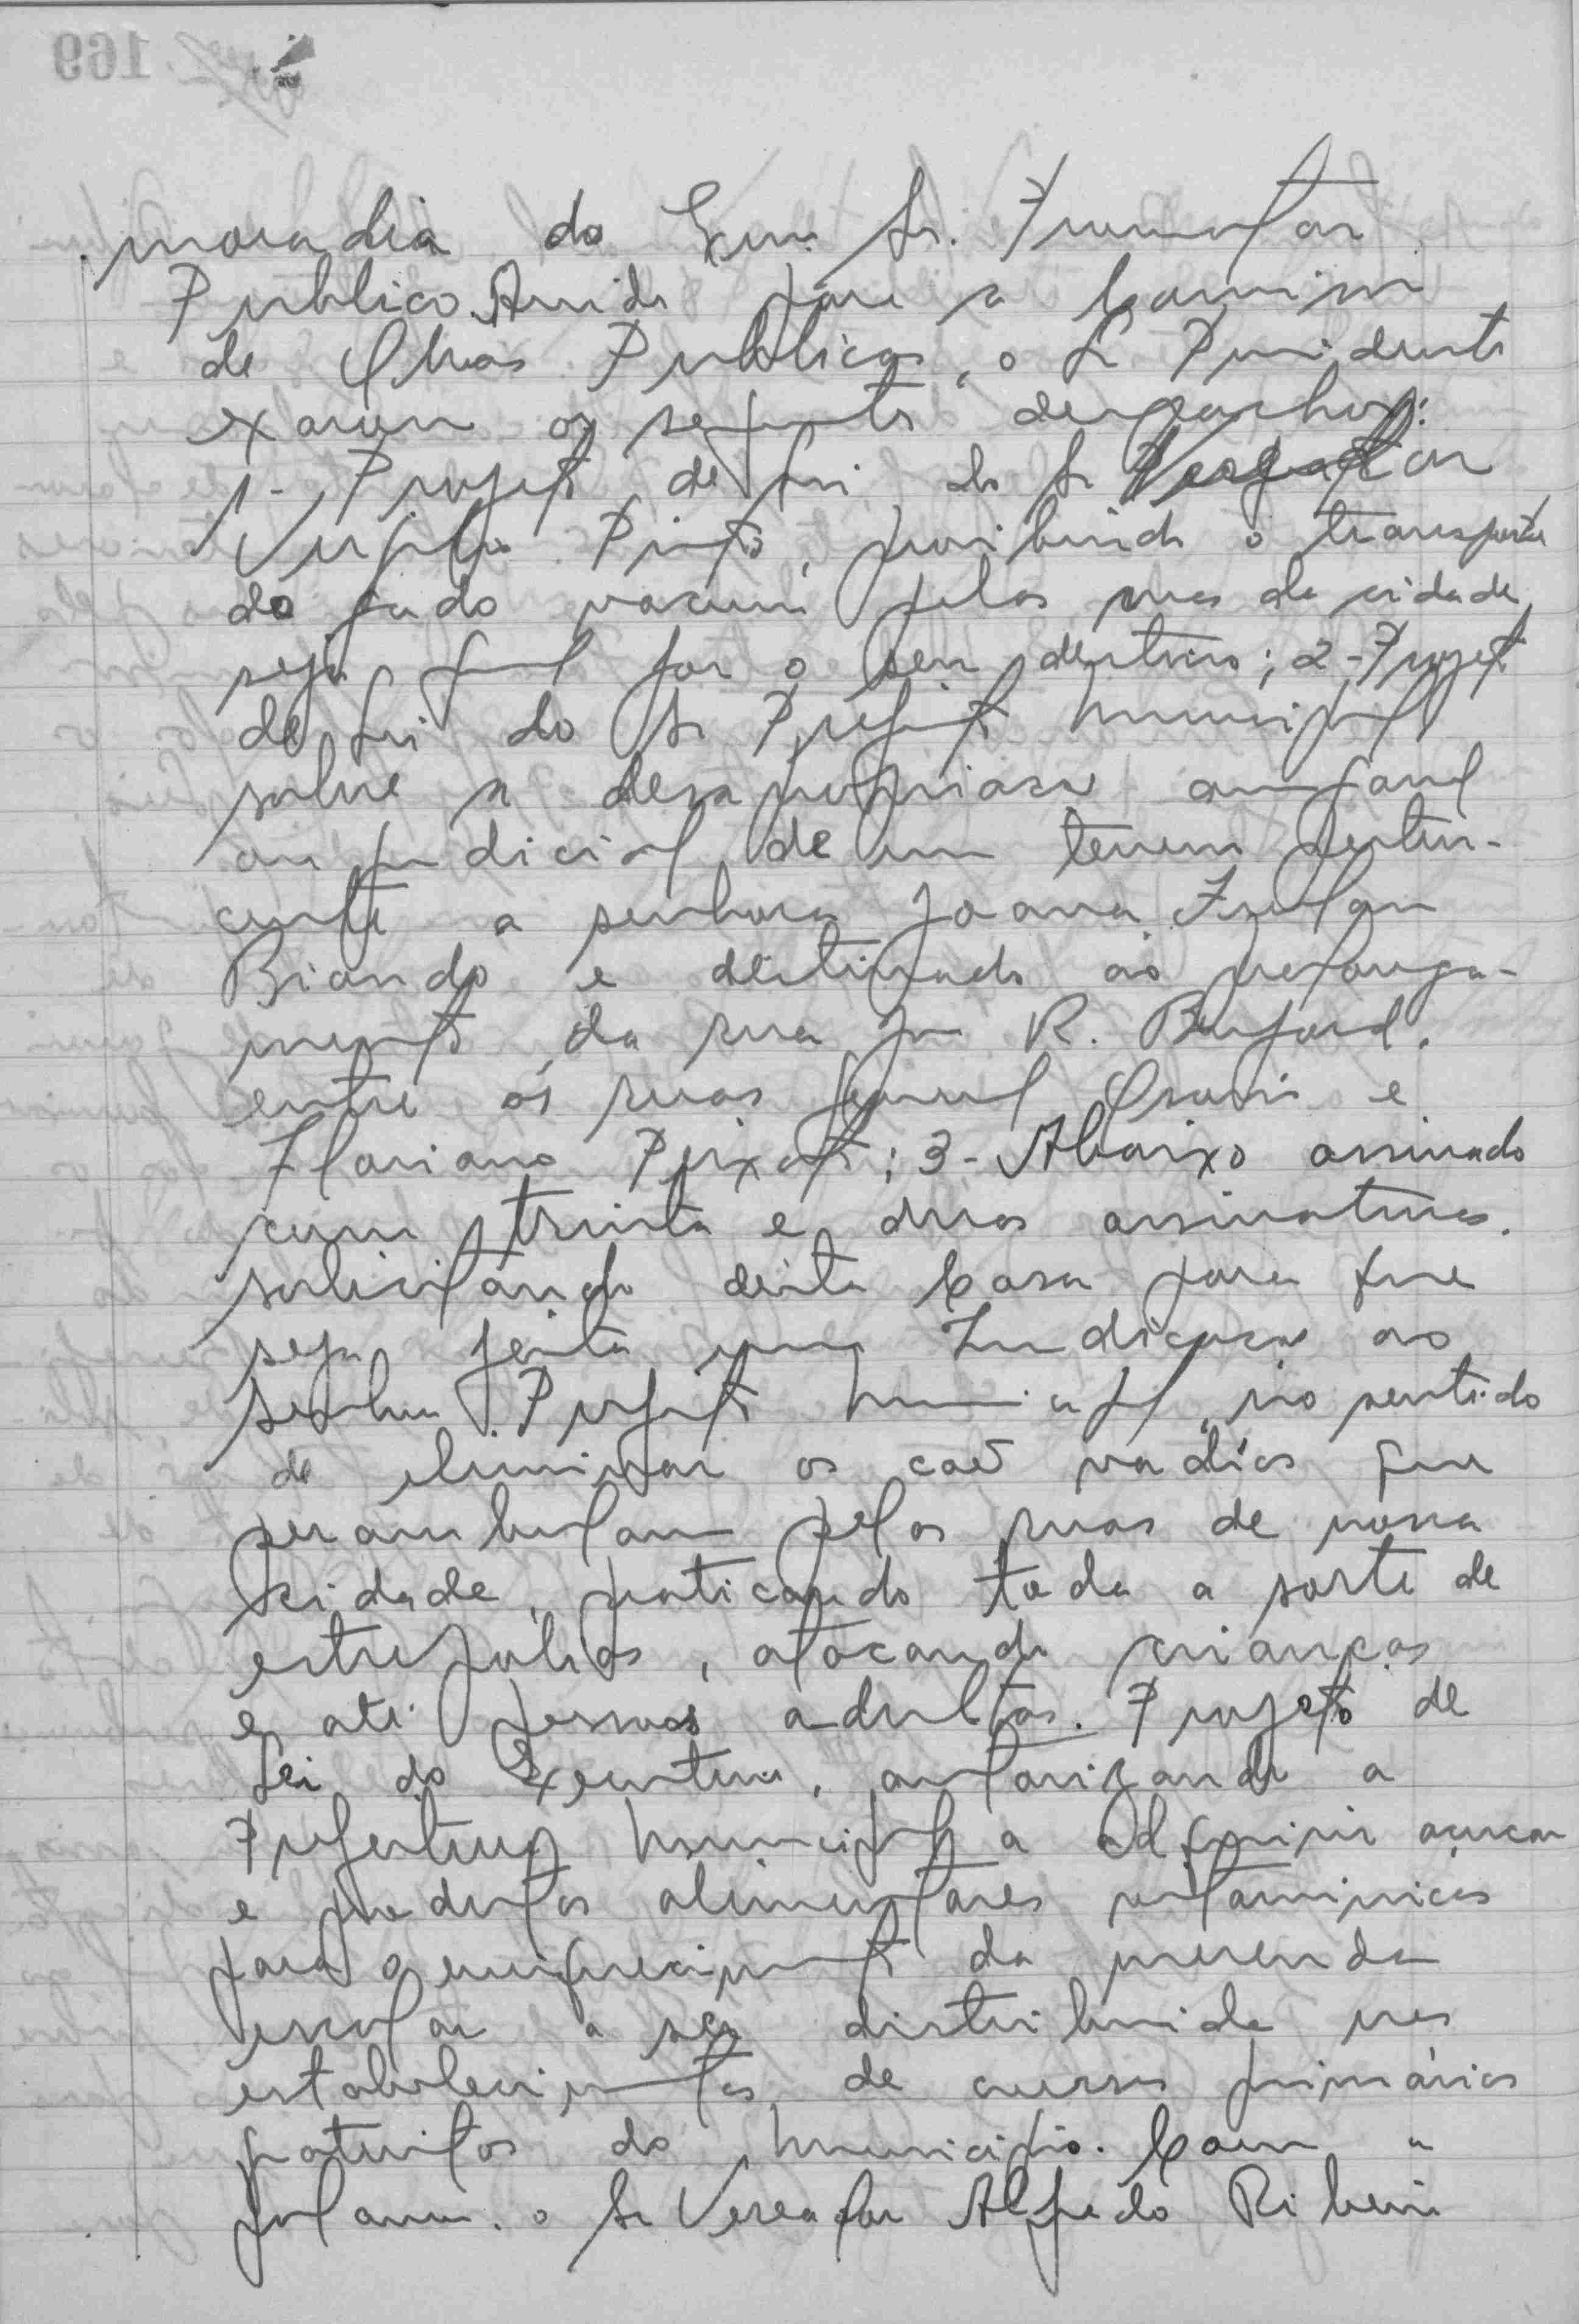 moradia do Exmo Sr. Promotor
Publico. Ainda para a Comissão
de Obras Publicas, o Sr Presidente
exarou os seguintes despachos:
1- Projeto de Lei do Sr Vereador
Virgilio Pinto, proibindo o transporte
do gado vacum pelas ruas da cidade,
seja qual for o seu destino; 2- Projeto
de Lei do Sr Prefeito Municipal
sobre a desapropriação amigavel
ou judicial de um terreno perten-
cente a senhora Joana
Biando e destinado ao prolonga-
mento da rua R.
entre as ruas General Osorio e
Floriano Peixoto; 3- Abaixo assinado
com trinta e duas assinaturas,
solicitando desta Casa para que
seja feita uma Indicação ao
Senhor Prefeito Municipal, no sentido
de eliminar os cãe vadios que
perambulam pelas ruas de nossa
cidade, praticando toda a sorte de
estrepolias, atacando crianças
e até pessoas adultas. Projeto de
Lei do Executivo, autorizando a
Prefeitura Municipal a adquirir açucar
e produtos alimentares vitaminicos
para o enriquecimento da merenda
escolar a ser distribuida nos
estabelecimentos de cursos primários
gratuitos do Municipio. Com a
palavra, o Sr Vereador Alfredo Ribeiro